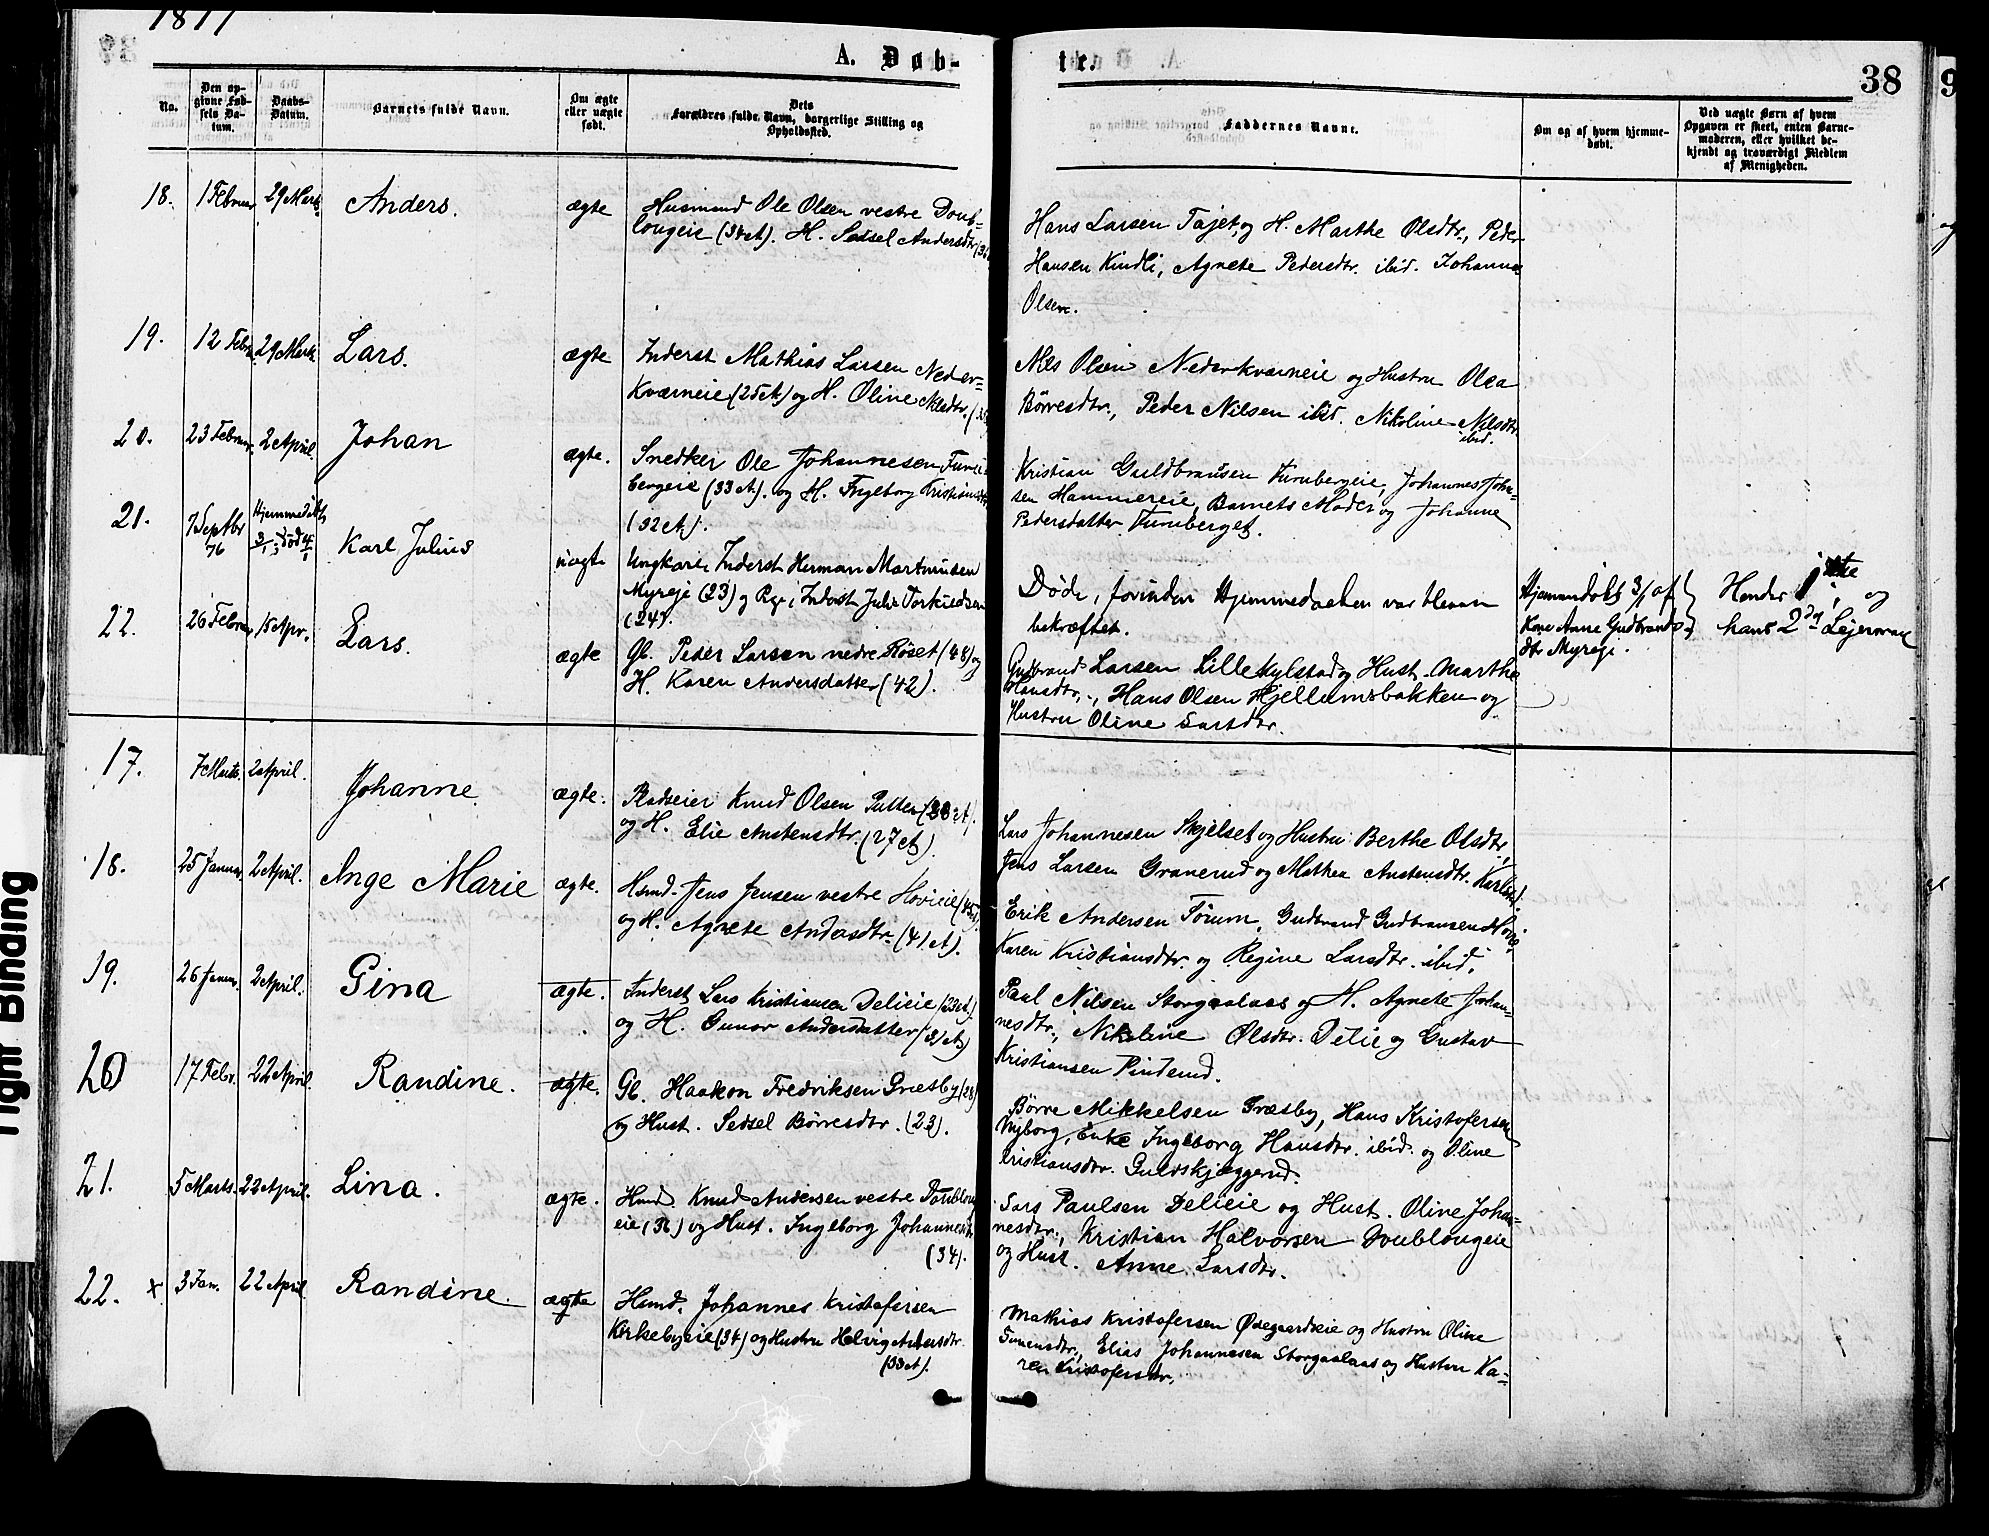 1877
A. Døb-
ter.
38
No.
Den op-
givne Fød-
sels Da-
tum.
Daabs-
Datum.
Barnets fulde Navn.
Om ægte
eller uægte
født.
Dets
Forældres fulde Navn, borgerlige Stilling og
Opholdssted.
Faddernes Navne.
Om og af hvem hjemme-
døbt.
Ved uægte Børn af hvem
Opgaven er skeet, enten Barne-
moderen, eller hvilket be-
kjendt og troværdigt Medlem
af Menigheden.
18. 1 Februar 29 Marts Anders. ægte
Husmand Ole Olsen vestre Doub-
longeie (34 A). H. Sedsel Andersdtr
Hans Larsen Tajet, og H. Marthe Olsdtr., Peder
Hansen Kindli, Agnete Pedersdtr. ibid. Johanne
Olsen.
19. 12 Febr. 29 Marts Lars. ægte
Inderst Mathias Larsen Neder-
kværneie (25 A.) og H. Oline Nilsdtr.
Nils Olsen Nederkværneie og Hustru Olea
Börresdtr., Peder Nilsen ibid. Nikoline Nilsdtr
ibid.
20. 23 Februar 2 April Johan ægte.
Snedker Ole Johannesen Furu-
bergeie (33 A). og H. Ingeborg Kristiansdtr
(32 A.).
Kristian Guldbransen Furubergeie, Johannes Johan-
sen Hammereie, Barnets Moder og Johanne
Pedersdatter Furuberget.
21. 7 Septbr 76 Hjemmedøbt 3/1. død 4/1 Karl Julius uægte
Ungkarl, Inderst Herman Martinusen
Myreje (23) og Pge, Inderst Julie Torkildsen
(24).
Døde, forinden Hjemmedaaben var bleven
bekræftet.
Hjemmedøbt 3/1 af
Kone Anne Gudbrands-
dtr Myreje.
Hendes 1ste og
hans 2den Lejermaal
22. 26 Februar 15 Apr. Lars. ægte
Gb. Peder Larsen nedre Røset (48) og
H. Karen Andersdatter (42).
Gudbrand Larsen Lille Kylstad og Hust. Marthe
Hansdtr., Hans Olsen Hjellumsbakken og
Hustru Oline Larsdtr.
17. 7 Marts. 2 April. Johanne. ægte.
Pladseier Knud Olsen Putten (38 A).
og H. Elie Austensdtr. (27 A)
Lars Johannesen Skjelset og Hustru Berthe Olsdtr,
Jens Larsen Granerud og Mathea Austensdtr.
18. 25 Januar. 2 April. Ange Marie ægte.
Hsmd. Jens Jensen vestre Hovieie (45)
og H. Agnete Andersdtr. (41 A).
Erik Andersen Törum, Gudbrand Gudbransen
Karen Kristiansdtr. og Regine Larsdtr. ibid.
19. 26 Januar. 2 April. Gina ægte.
Inderst Lars Kristiansen Delieie (23 A.)
og H. Gunor Andersdatter (31 A)
Paul Nilsen Storgaalaas og H. Agnete Johan-
nesdtr., Nikoline Olsdtr. Delie og Gustav
Kristiansen Pinderud.
20 17 Febr. 22 April. Randine. ægte.
Gb. Haakon Fredriksen Græsby (28)
og Hust. Sedsel Börresdtr. (23).
Börre Mikkelsen Græsby, Hans Kristofersen
Nyborg, Enke Ingeborg Hansdtr. ibid. og Oline
Kristiansdtr. Guldskjæggerud.
21. 5 Marts. 22 April. Lina. ægte.
Hsmd. Knud Andersen vestre Doublon-
eie (36) og Hust. Ingeborg Johannesdtr
(34).
Lars Paulsen Delieie og Hust. Oline Johan-
nesdtr., Kristian Halvorsen Doublongeie
og Hust. Anne Larsdtr.
22. x 3 Jan. 22 April Randine. ægte
Hsmd. Johannes Kristofersen
Kirkebyeie (34) og Hustru Helvig
(33 A).
Mathias Kristofersen Ødegaardseie og Hustru Oline
Simensdtr., Elias Johannesen Storgaalaas og Hustru Ka-
ren Kristofersdtr.
Tight Binding